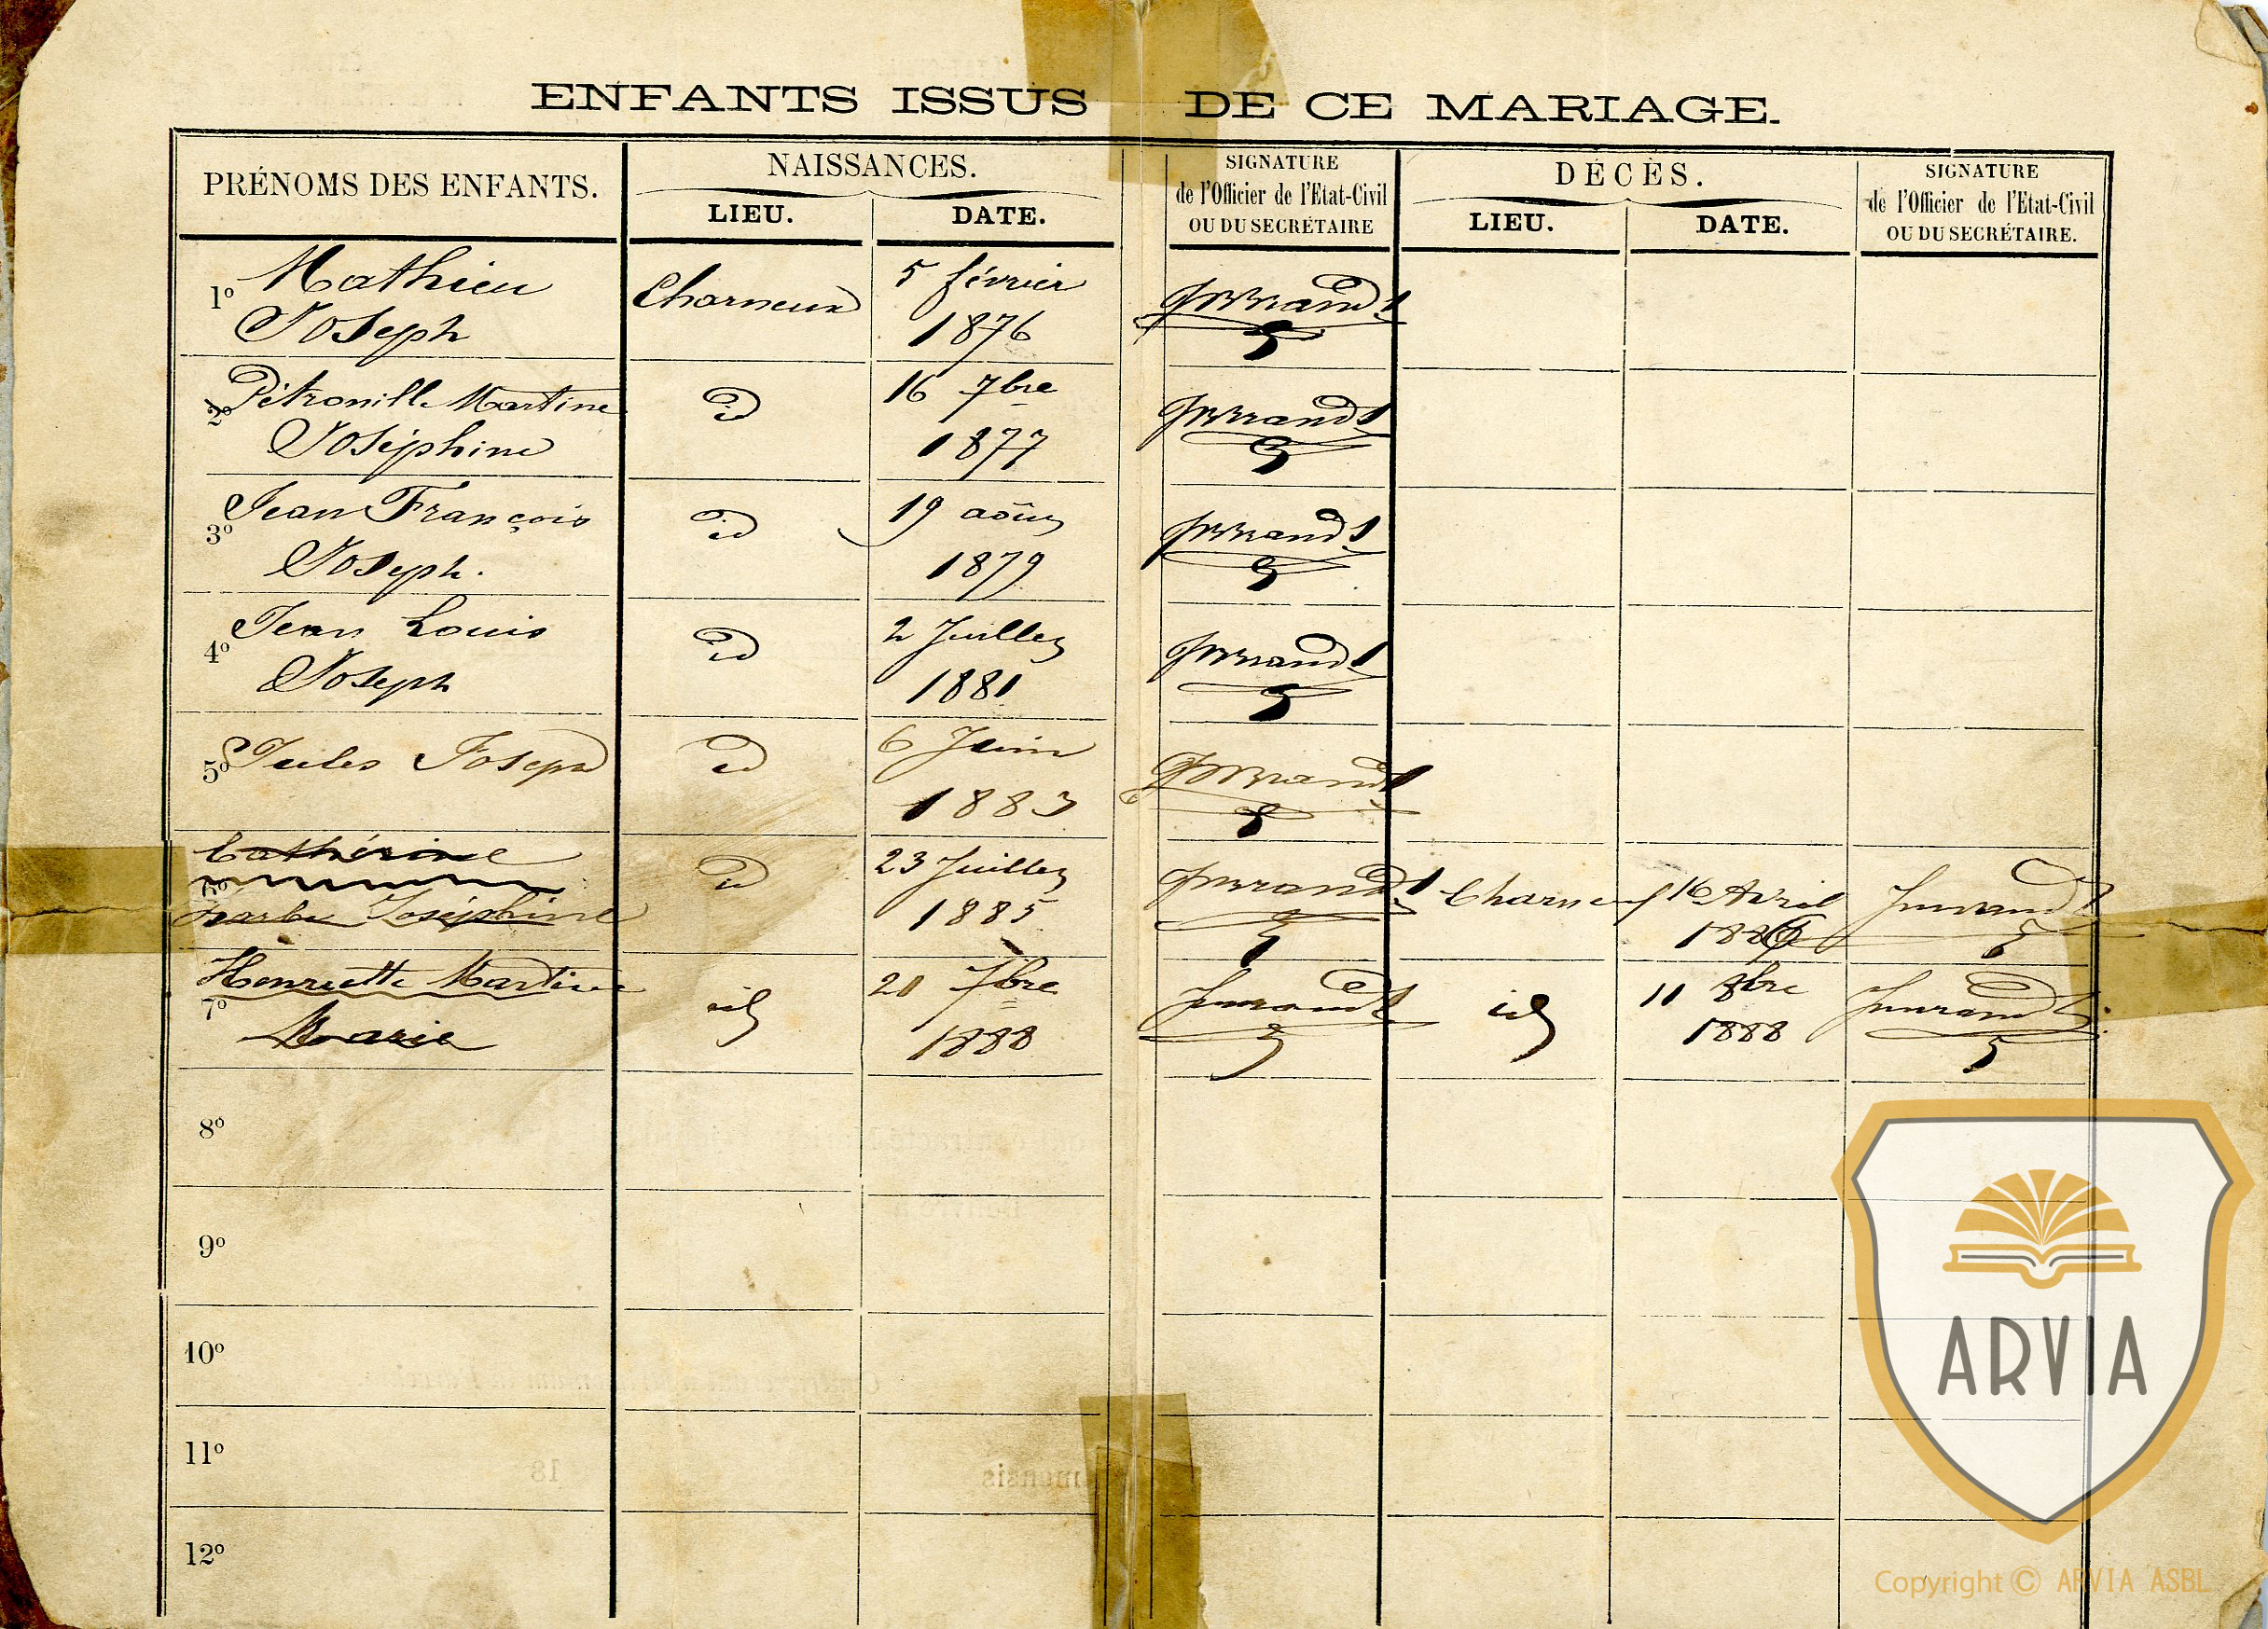 ENFANTS ISSUS DE CE MARIAGE.
PRÉNOMS DES ENFANTS.
NAISSANCES.
LIEU.
DATE.
SIGNATURE
de l'Officier de l'Etat-Civil
OU DU SECRÉTAIRE
DÉCÈS.
LIEU.
DATE.
SIGNATURE
de l'Officier de l'Etat-Civil
OU DU SECRÉTAIRE.
1º Mathieu
Joseph
Charneux
5 février
1876
2º Pétronille Martine
Joséphine
id
16 7bre
1877
3º Jean François
Joseph.
id
19 août
1879
4º Jean Louis
Joseph
id
2 Juillet
1881
5º Jules Joseph
id
6 Juin
1883
6º Cathérine
Barbe Joséphine
id
23 Juillet
1885
Charneux
16 Avril
1886
7º Henriette Martine
Marie
id
20 7bre
1888
id
11 8bre
1888
8º
9º
10º
11º
12º
ARVIA
Copyright © ARVIA ASBL